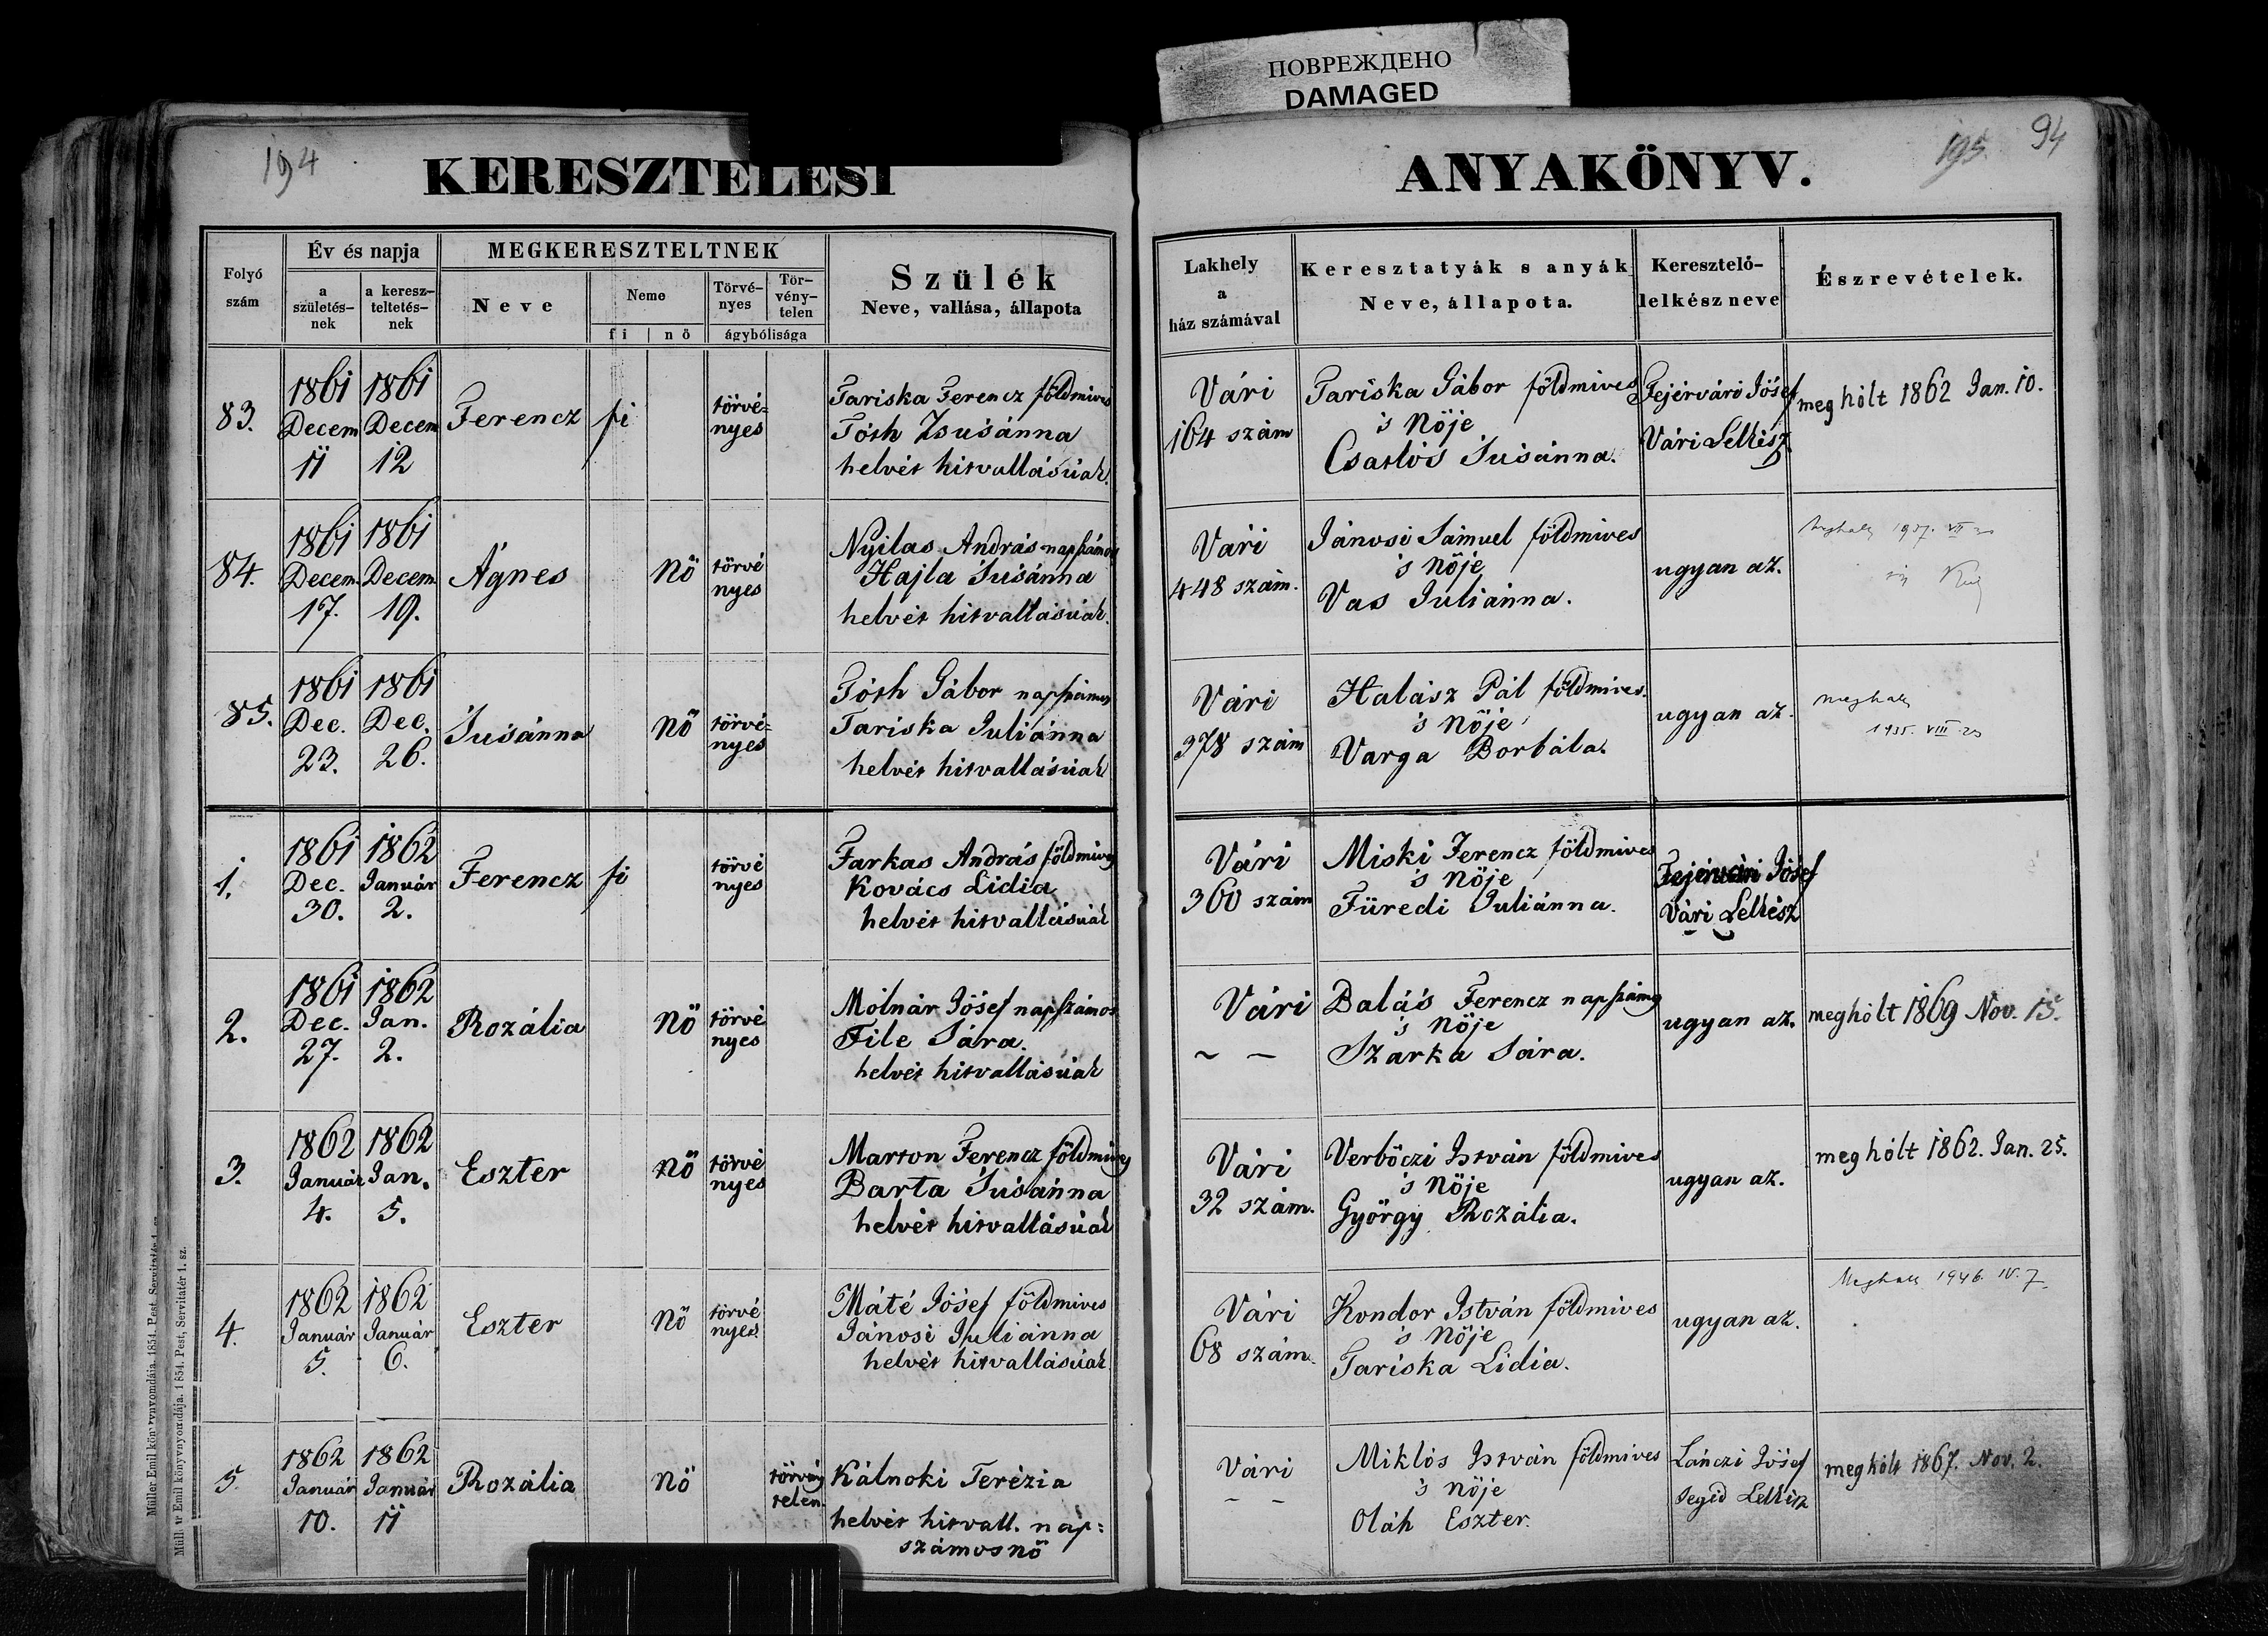 ПОВРЕЖДЕНО
DAMAGED
194
KERESZTELESI
ANYAKÖNYV.
195.
94
Folyó
szám
Év és napja
a
születés-
nek
a keresz-
teltetés-
nek
MEGKERESZTELTNEK
Neve
Neme
fi
nö
Törvé-
nyes
Tör-
vény-
telen
ágybólisága
Szülék
Neve, vallása, állapota
Lakhely
a
ház számával
Keresztatyák s anyák
Neve, állapota.
Keresztelő-
lelkész neve
Észrevételek.
83.
1861
Decem
11
1861
Decem
12
Ferencz
fi
törvé-
nyes
Tariska Ferencz földmives
Tóth Zsuśánna
helvét hitvallásúak.
Vári
164 szám
Tariska Gábor földmives
's Nöje
Csatlós Śuśánna.
Fejérvári Jósef
Vári Lelkész.
meghólt 1862 Jan. 10.
84.
1861
Decem.
17.
1861
Decem.
19.
Ágnes
Nö
törvé
nyes
Nyilas András napszámos
Hajla Śuśánna
helvét hitvallásúak.
Vári
448 szám.
Jánosi Sámuel földmives
's Nöje
Vas Juliánna.
ugyan az.
Meghalt
85.
1861
Dec.
23.
1861
Dec.
26.
Śuśánna
Nö
törvé-
nyes
Tóth Gábor napszámos
Tariska Juliánna
helvét hitvallásúak
Vári
378 szám
Halász Pál földmives.
's Nöje
Varga Borbála.
ugyan az.
meghalt
1935. VIII. 23
1.
1861
Dec.
30.
1862
Január
2.
Ferencz
fi
törvé
nyes
Farkas András földmives
Kovács Lidia
helvét hitvallásúak
Vári
360 szám
Miski Ferencz földmives
's Nöje
Füredi Juliánna.
Fejérvári Jósef
Vári Lelkész
2.
1861
Dec.
27.
1862
Jan.
2.
Rozália
Nö
törvé
nyes
Mólnár Jósef napszámos
File Sára.
helvét hitvallásúak
Vári
~ —
Balás Ferencz napszámos
's Nöje
Szarka Sára.
ugyan az.
meghólt 1869 Nov. 15.
3.
1862
Január
4.
1862
Jan.
5.
Eszter
Nö
törvé
nyes
Marton Ferencz földmives
Barta Śuśánna
helvét hitvallásúak
Vári
32 szám.
Verbőczi István földmives
's Nöje
György Rozália.
ugyan az.
meghólt 1862. Jan. 25.
4.
1862
Január
5.
1862
Január
6.
Eszter
Nö
törvé
nyes.
Máté Jósef földmives
Jánosi Juliánna
helvét hitvallásúak
Vári
68 szám.
Kondor István földmives
's Nöje
Tariska Lidia.
ugyan az.
Meghalt 1946. IV. 7.
5.
1862
Január
10.
1862
Január
11
Rozália
Nö
törvény
telen.
Kálnoki Terézia
helvét hitvall. nap:
számosnö
Vári
– –
Miklós István földmives
's Nöje
Oláh Eszter.
Lánczi Jósef
Segéd Lelkész
meghólt 1867. Nov. 2.
Müller Emil könyvnyomdája. 1854. Pest, Servitatér 1. sz.